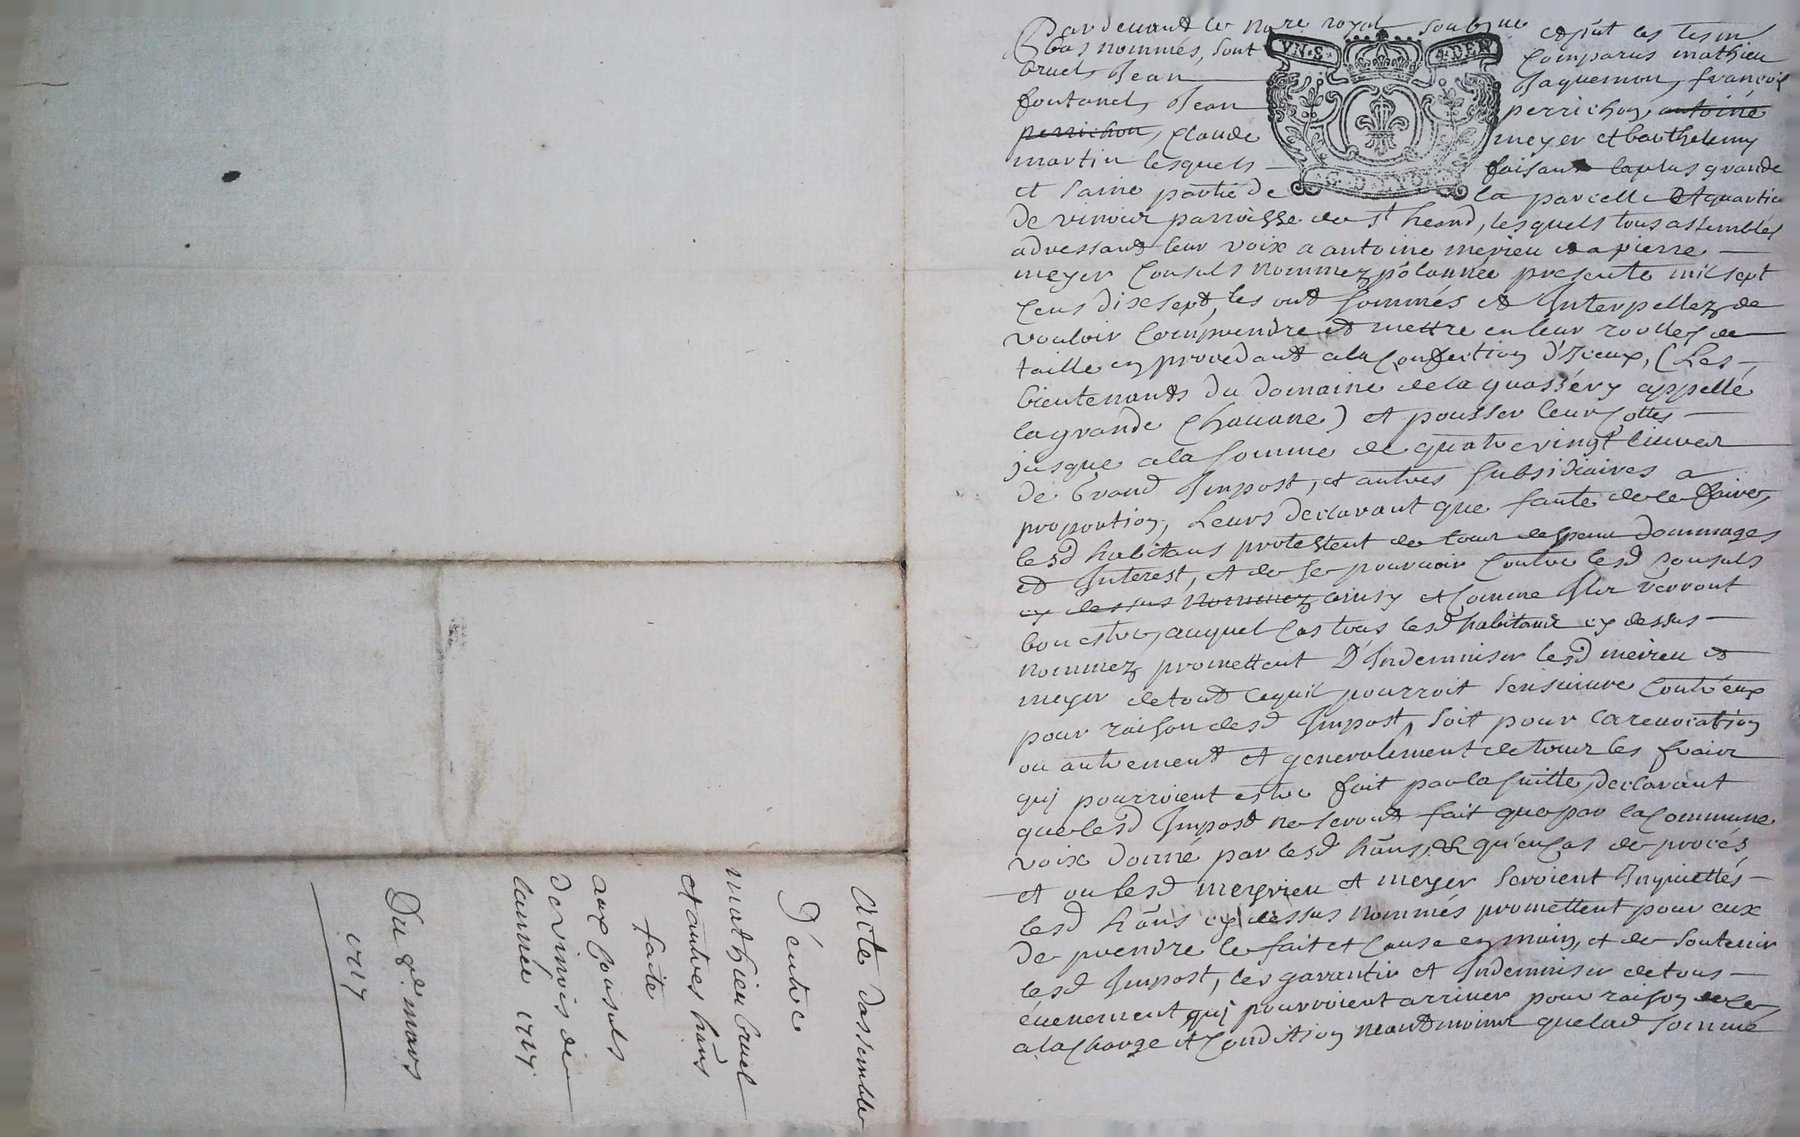 Par devant le No.re royal soubz.né et pnt les tesm
bas nommés, sont comparus mathieu
bruel Jean Jaquemon, françois
fontanel, Jean perrichon, antoine
perrichon, claude meyer et barthelemy
martin lesquels faisant la plus grande
et saine partie de la parcelle et quartier
de vinoir parroisse de st heand, lesquels tous assemblés
adressant leur voix a antoine meyrieu et a pierre
meyer Consuls nommez po.r lannée presente mil sept
Cens dix sept, les ont sommés et Interpellez de
vouloir Comprendre et mettre en leur roolles de
taille en procedant a la Confection d'Iceux, (Les
bientenants du domaine de la quassery appellé
la grande Chouane) et pousser leur Cottes
jusque a la somme de quatre vingt livres
de Grand Impost, et autres subsidiaires a
proportion, Leurs declarant que faute de le faire,
lesd habitans protestent de tous despens dommages
et Interest, et de se pourvoir Contre lesd Consuls
cy dessus nommez ainsy et Comme Ils verront
bon estre, auquel Cas tous lesd habitans cy dessus
nommez promettent D'Indemniser lesd meirieu et
meyer de tout ce quil pourroit sensuivre Contr'eux
pour raison desd Impost, soit pour la revocation
ou autrement et generalement de tous les frais
quj pourroient estre fait par la suitte, declarant
que lesd Impost ne seront fait que par la Commune
voix donné par lesd hans, et qu'en Cas de procés
et ou lesd meyrieu et meyer seroient Inquiettés
lesd hans cy dessus nommés promettent pour eux
de prendre le fait et Cause en main, et de soutenir
lesd Impost, les garantir et Indemniser de tous
evenement quj pourroient arriver pour raison de ce
a la Charge et Condition neantmoins que lad somme
VN.S. 4.DEN
Acte dassemblée
D'entre
mathieu bruel
et autres hans
faite
aux Consuls
de vinois de
lannée 1717
Du 9e mars
1717